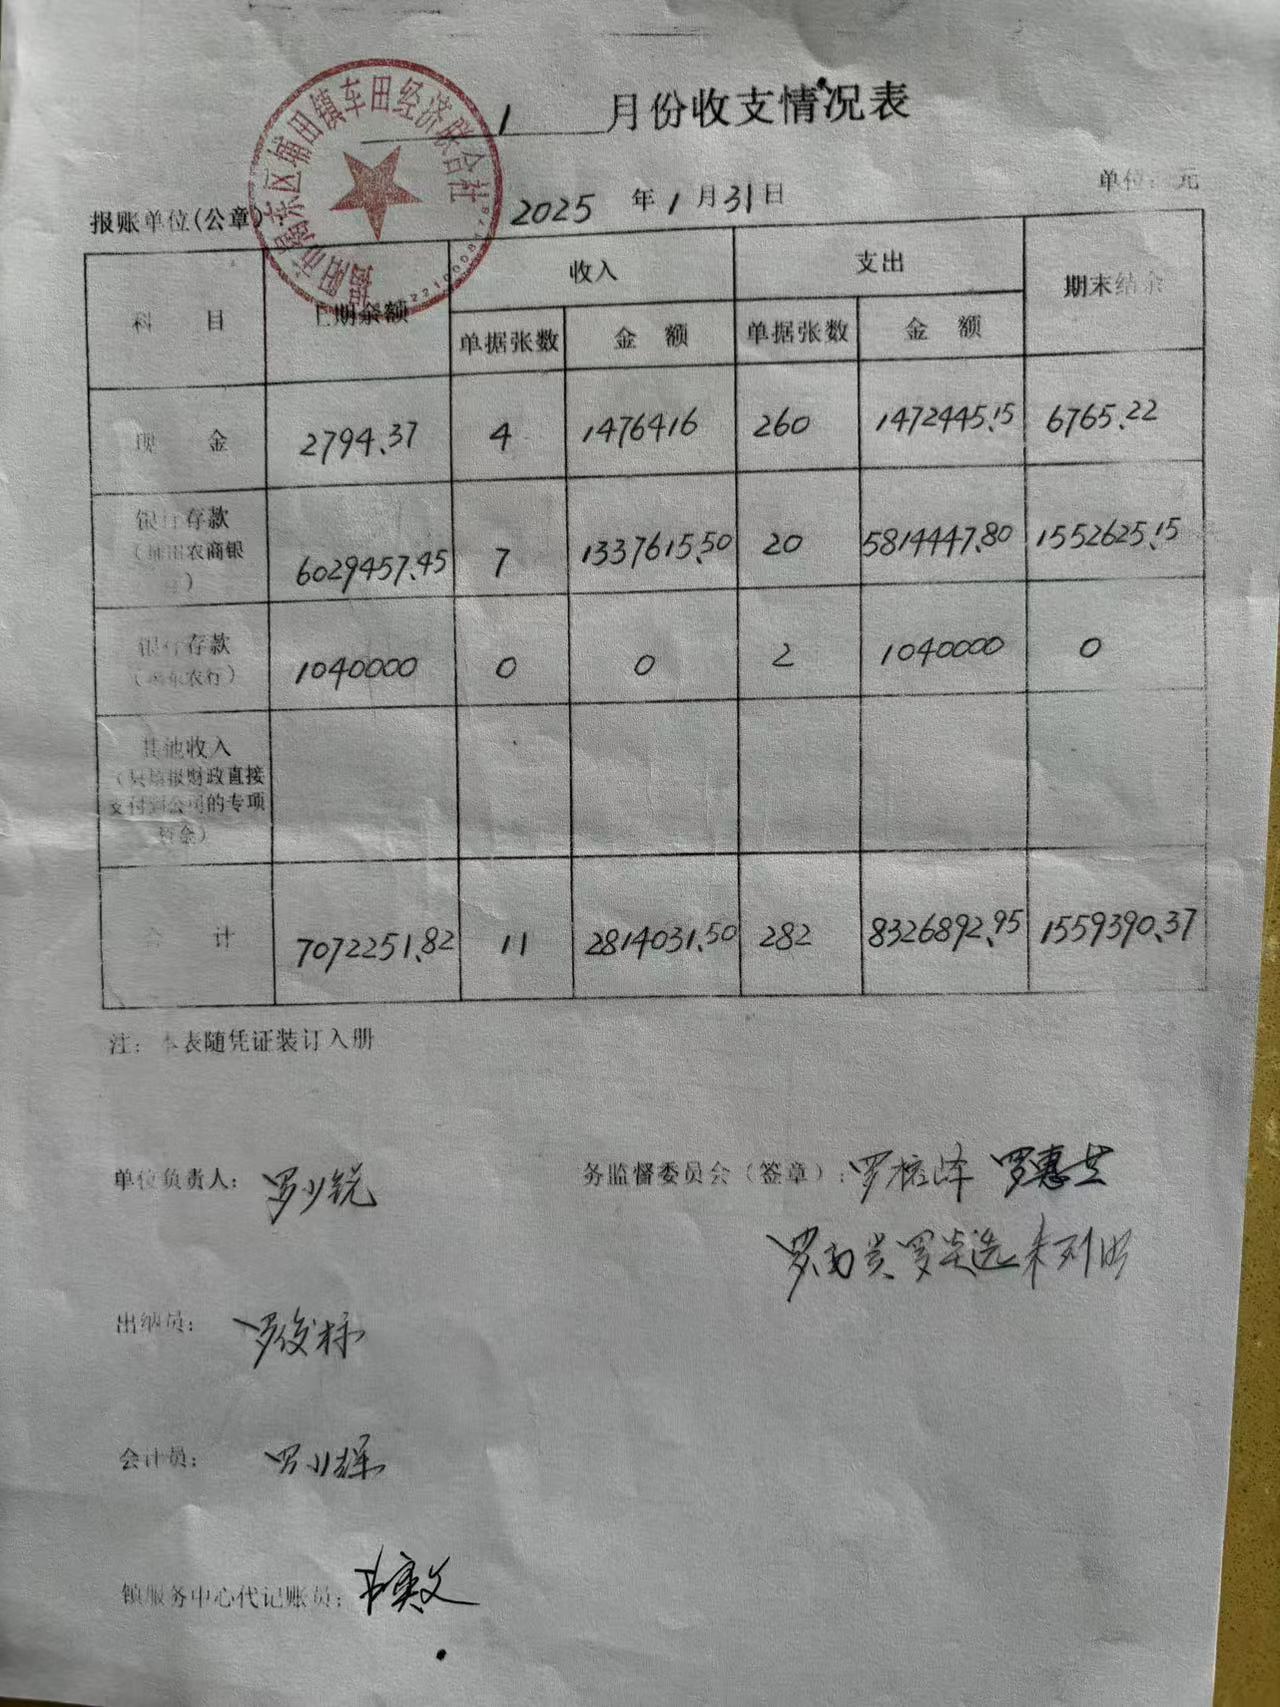 1 月份收支情况表
揭阳市揭东区埔田镇车田经济联合社
单位：元
报账单位(公章)： 2025 年 1 月 31 日
科 目 上期余额 收入 支出 期末结余
单据张数 金 额 单据张数 金 额
现 金 2794.37 4 1476416 260 1472445.15 6765.22
银行存款
（埔田农商银
行） 6029457.45 7 1337615.50 20 5814447.80 1552625.15
银行存款
（揭东农行） 1040000 0 0 2 1040000 0
其他收入
（只填报财政直接
支付到公司的专项
资金）
合 计 7072251.82 11 2814031.50 282 8326892.95 1559390.37
注：本表随凭证装订入册
单位负责人： 罗少锐
务监督委员会（签章）：
出纳员： 罗俊标
会计员： 罗小辉
镇服务中心代记账员：